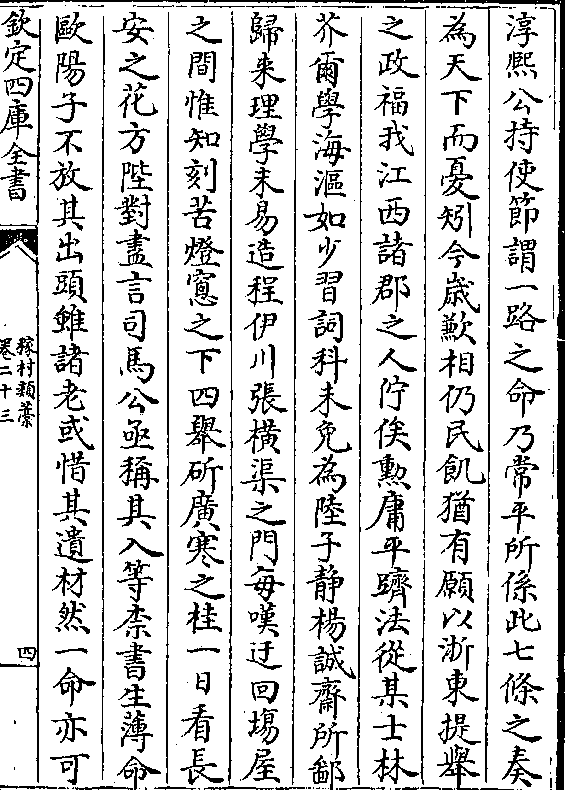 淳熙公持使節謂一路之命乃常平所係此七條之奏
為天下而憂矧今歳歉相仍民飢猶有願以浙東提舉
之政福我江西諸郡之人佇俟勲庸平躋法從某士林
芥爾學海漚如少習詞科未免為陸子静楊誠齋所鄙
歸来理學未易造程伊川張横渠之門每嘆迂回塲屋
之間惟知刻苦燈窻之下四舉斫廣寒之桂一日看長
安之花方陛對盡言司馬公亟稱其入等柰書生薄命
歐陽子不放其出頭雖諸老或惜其遺材然一命亦可
欽定四庫全書
稼村類藁
卷二十三
四